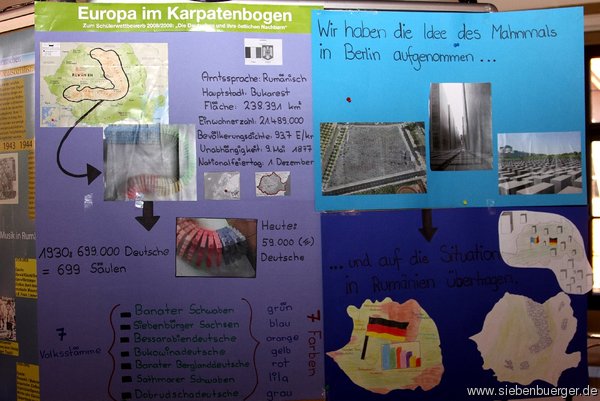 Europa im Karpatenbogen
Zum Schülerwettbewerb 2008/2009: „Die Deutschen und ihre östlichen Nachbarn"
RUMÄNIEN
Amtssprache: Rumänisch
Hauptstadt: Bukarest
Fläche: 238.391 km²
Einwohnerzahl: 21.489.000
Bevölkerungsdichte: 93,7 E/km
Unabhängigkeit: 9. Mai 1877
Nationalfeiertag: 1 Dezember
1930: 699.000 Deutsche
= 699 Säulen
Heute:
59.000 (≤)
Deutsche
7
Volksstämme
Banater Schwaben grün
Siebenbürger Sachsen blau
Bessarabiendeutsche orange
Bukowinadeutsche gelb
Banater Berglanddeutsche rot
Sathmarer Schwaben lila
Dobrudschadeutsche grau
7 Farben
Wir haben die Idee des Mahnmals
in Berlin aufgenommen ...
...und auf die Situation
in Rumänien übertragen.
1943 1944
Musik in Rumä
www.siebenbuerger.de